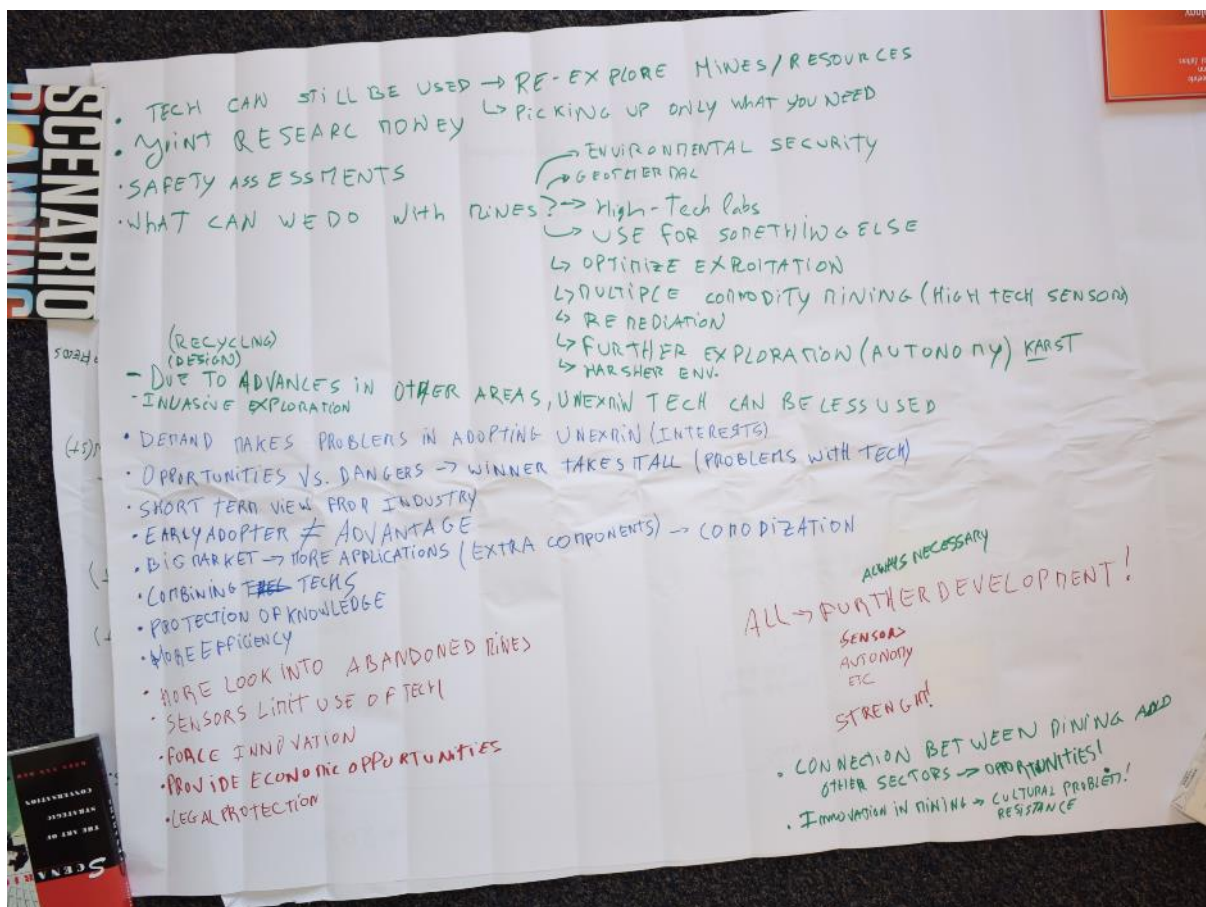 • TECH CAN STILL BE USED → RE-EXPLORE MINES/RESOURCES
↳ PICKING UP ONLY WHAT YOU NEED
• JOINT RESEARC MONEY
• SAFETY ASSESSMENTS
→ ENVIRONMENTAL SECURITY
→ GEOTHERMAL
• WHAT CAN WE DO WITH MINES? → HIGH-TECH LABS
↳ USE FOR SOMETHING ELSE
↳ OPTIMIZE EXPLOITATION
↳ MULTIPLE COMMODITY MINING (HIGH TECH SENSORS)
↳ REMEDIATION
↳ FURTHER EXPLORATION (AUTONOMY) KARST
↳ HARSHER ENV.
(RECYCLING)
(DESIGN)
- DUE TO ADVANCES IN OTHER AREAS, UNEXMIN TECH CAN BE LESS USED
- INVASIVE EXPLORATION
• DEMAND MAKES PROBLEMS IN ADOPTING UNEXMIN (INTERESTS)
• OPPORTUNITIES VS. DANGERS → WINNER TAKES IT ALL (PROBLEMS WITH TECH)
• SHORT TERM VIEW FROM INDUSTRY
• EARLY ADOPTER ≠ ADVANTAGE
• BIG MARKET → MORE APPLICATIONS (EXTRA COMPONENTS) → COMODIZATION
• COMBINING TECHS
• PROTECTION OF KNOWLEDGE
• MORE EFFICIENCY
• MORE LOOK INTO ABANDONED MINES
• SENSORS LIMIT USE OF TECH
• FORCE INNOVATION
• PROVIDE ECONOMIC OPPORTUNITIES
• LEGAL PROTECTION
ALWAYS NECESSARY
ALL → FURTHER DEVELOPMENT!
SENSORS
AUTONOMY
ETC
STRENGHT!
• CONNECTION BETWEEN MINING AND
OTHER SECTORS → OPPORTUNITIES!
• INNOVATION IN MINING → CULTURAL PROBLEM!
RESISTANCE
SCENARIO
PLANNING
THE ART OF
STRATEGIC
CONVERSATION
SCENA